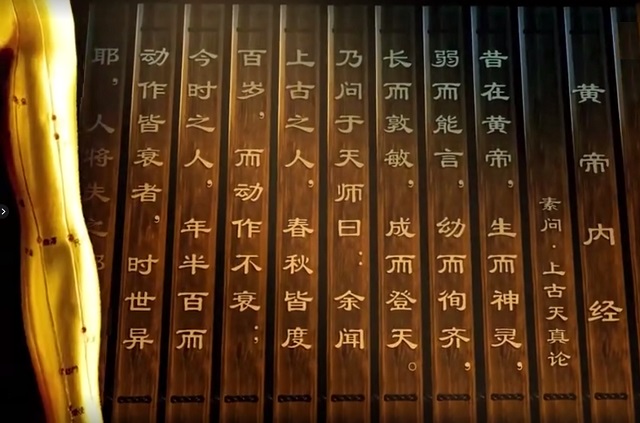 黄帝内经
素问·上古天真论
昔在黄帝，生而神灵，
弱而能言，幼而徇齐，
长而敦敏，成而登天。
乃问于天师曰：余闻
上古之人，春秋皆度
百岁，而动作不衰；
今时之人，年半百而
动作皆衰者，时世异
耶，人将失之耶